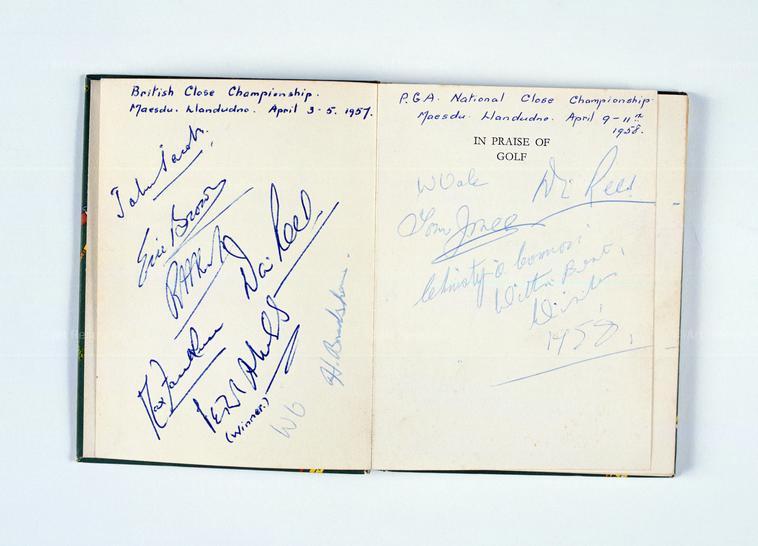 British Close Championship.
Maesdu. Llandudno. April 3-5. 1957.
John Jacobs.
Eric Brown
Dai Rees
Max Faulkner
Peter Alliss
(Winner.)
H. Bradshaw.
P.G.A. National Close Championship.
Maesdu. Llandudno. April 9-11th
1958.
IN PRAISE OF
GOLF
Dai Rees
Tom Jones
Christy O'Connor
With Best
Wishes
1958.